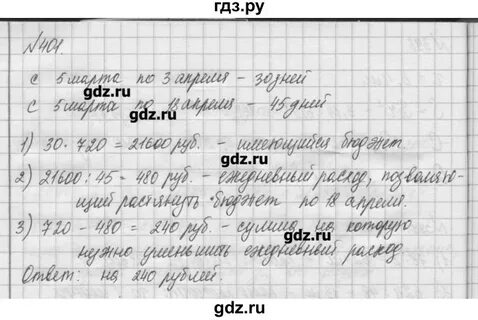 гдз.ру
№401.
с 5 марта по 3 апреля – 30 дней
с 5 марта по 18 апреля – 45 дней
1) 30 · 720 = 21600 руб. – имеющийся бюджет
2) 21600 : 45 = 480 руб. – ежедневный расход, позволяю-
щий растянуть бюджет по 18 апреля.
3) 720 – 480 = 240 руб. – сумма, на которую
нужно уменьшить ежедневный расход
Ответ: на 240 рублей.
gdz.ru
gdz.ru
gdz.ru
gdz.ru
gdz.ru
gdz.ru
gdz.ru
gdz.ru